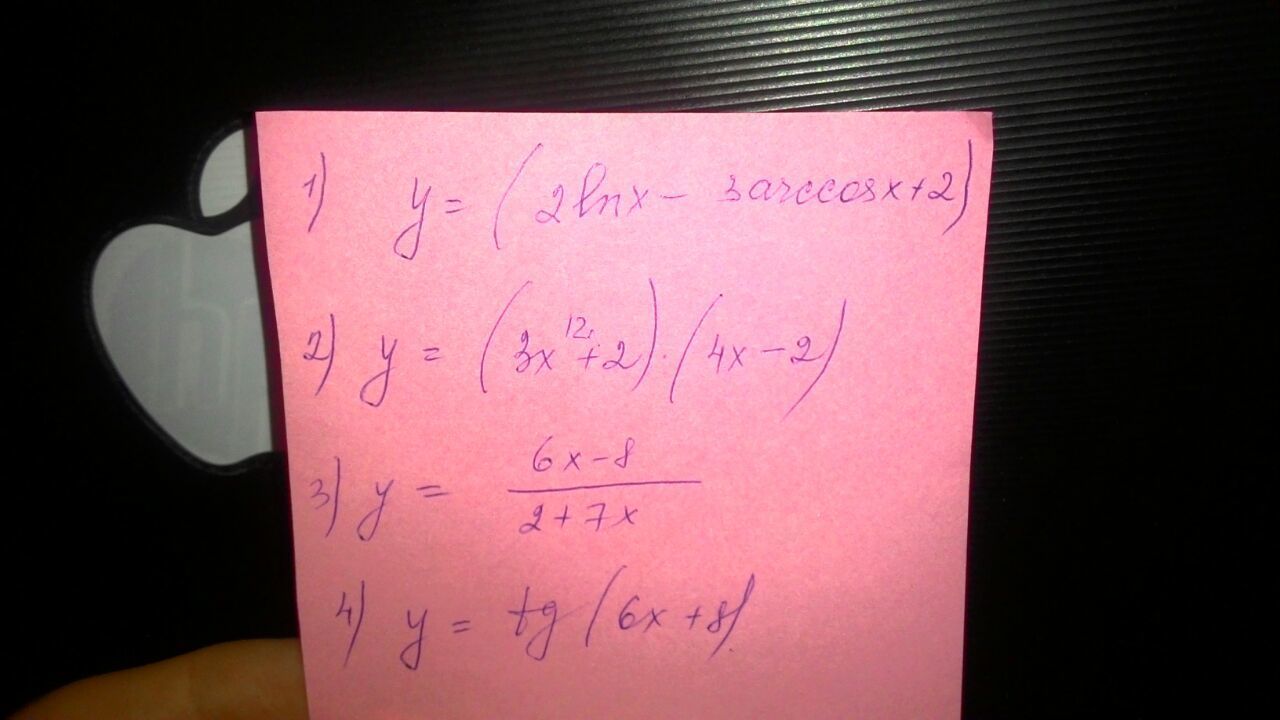 1) y = (2lnx - 3arccosx+2)
2) y = (3x¹²+2)·(4x-2)
3) y = (6x-8)/(2+7x)
4) y = tg(6x+8)